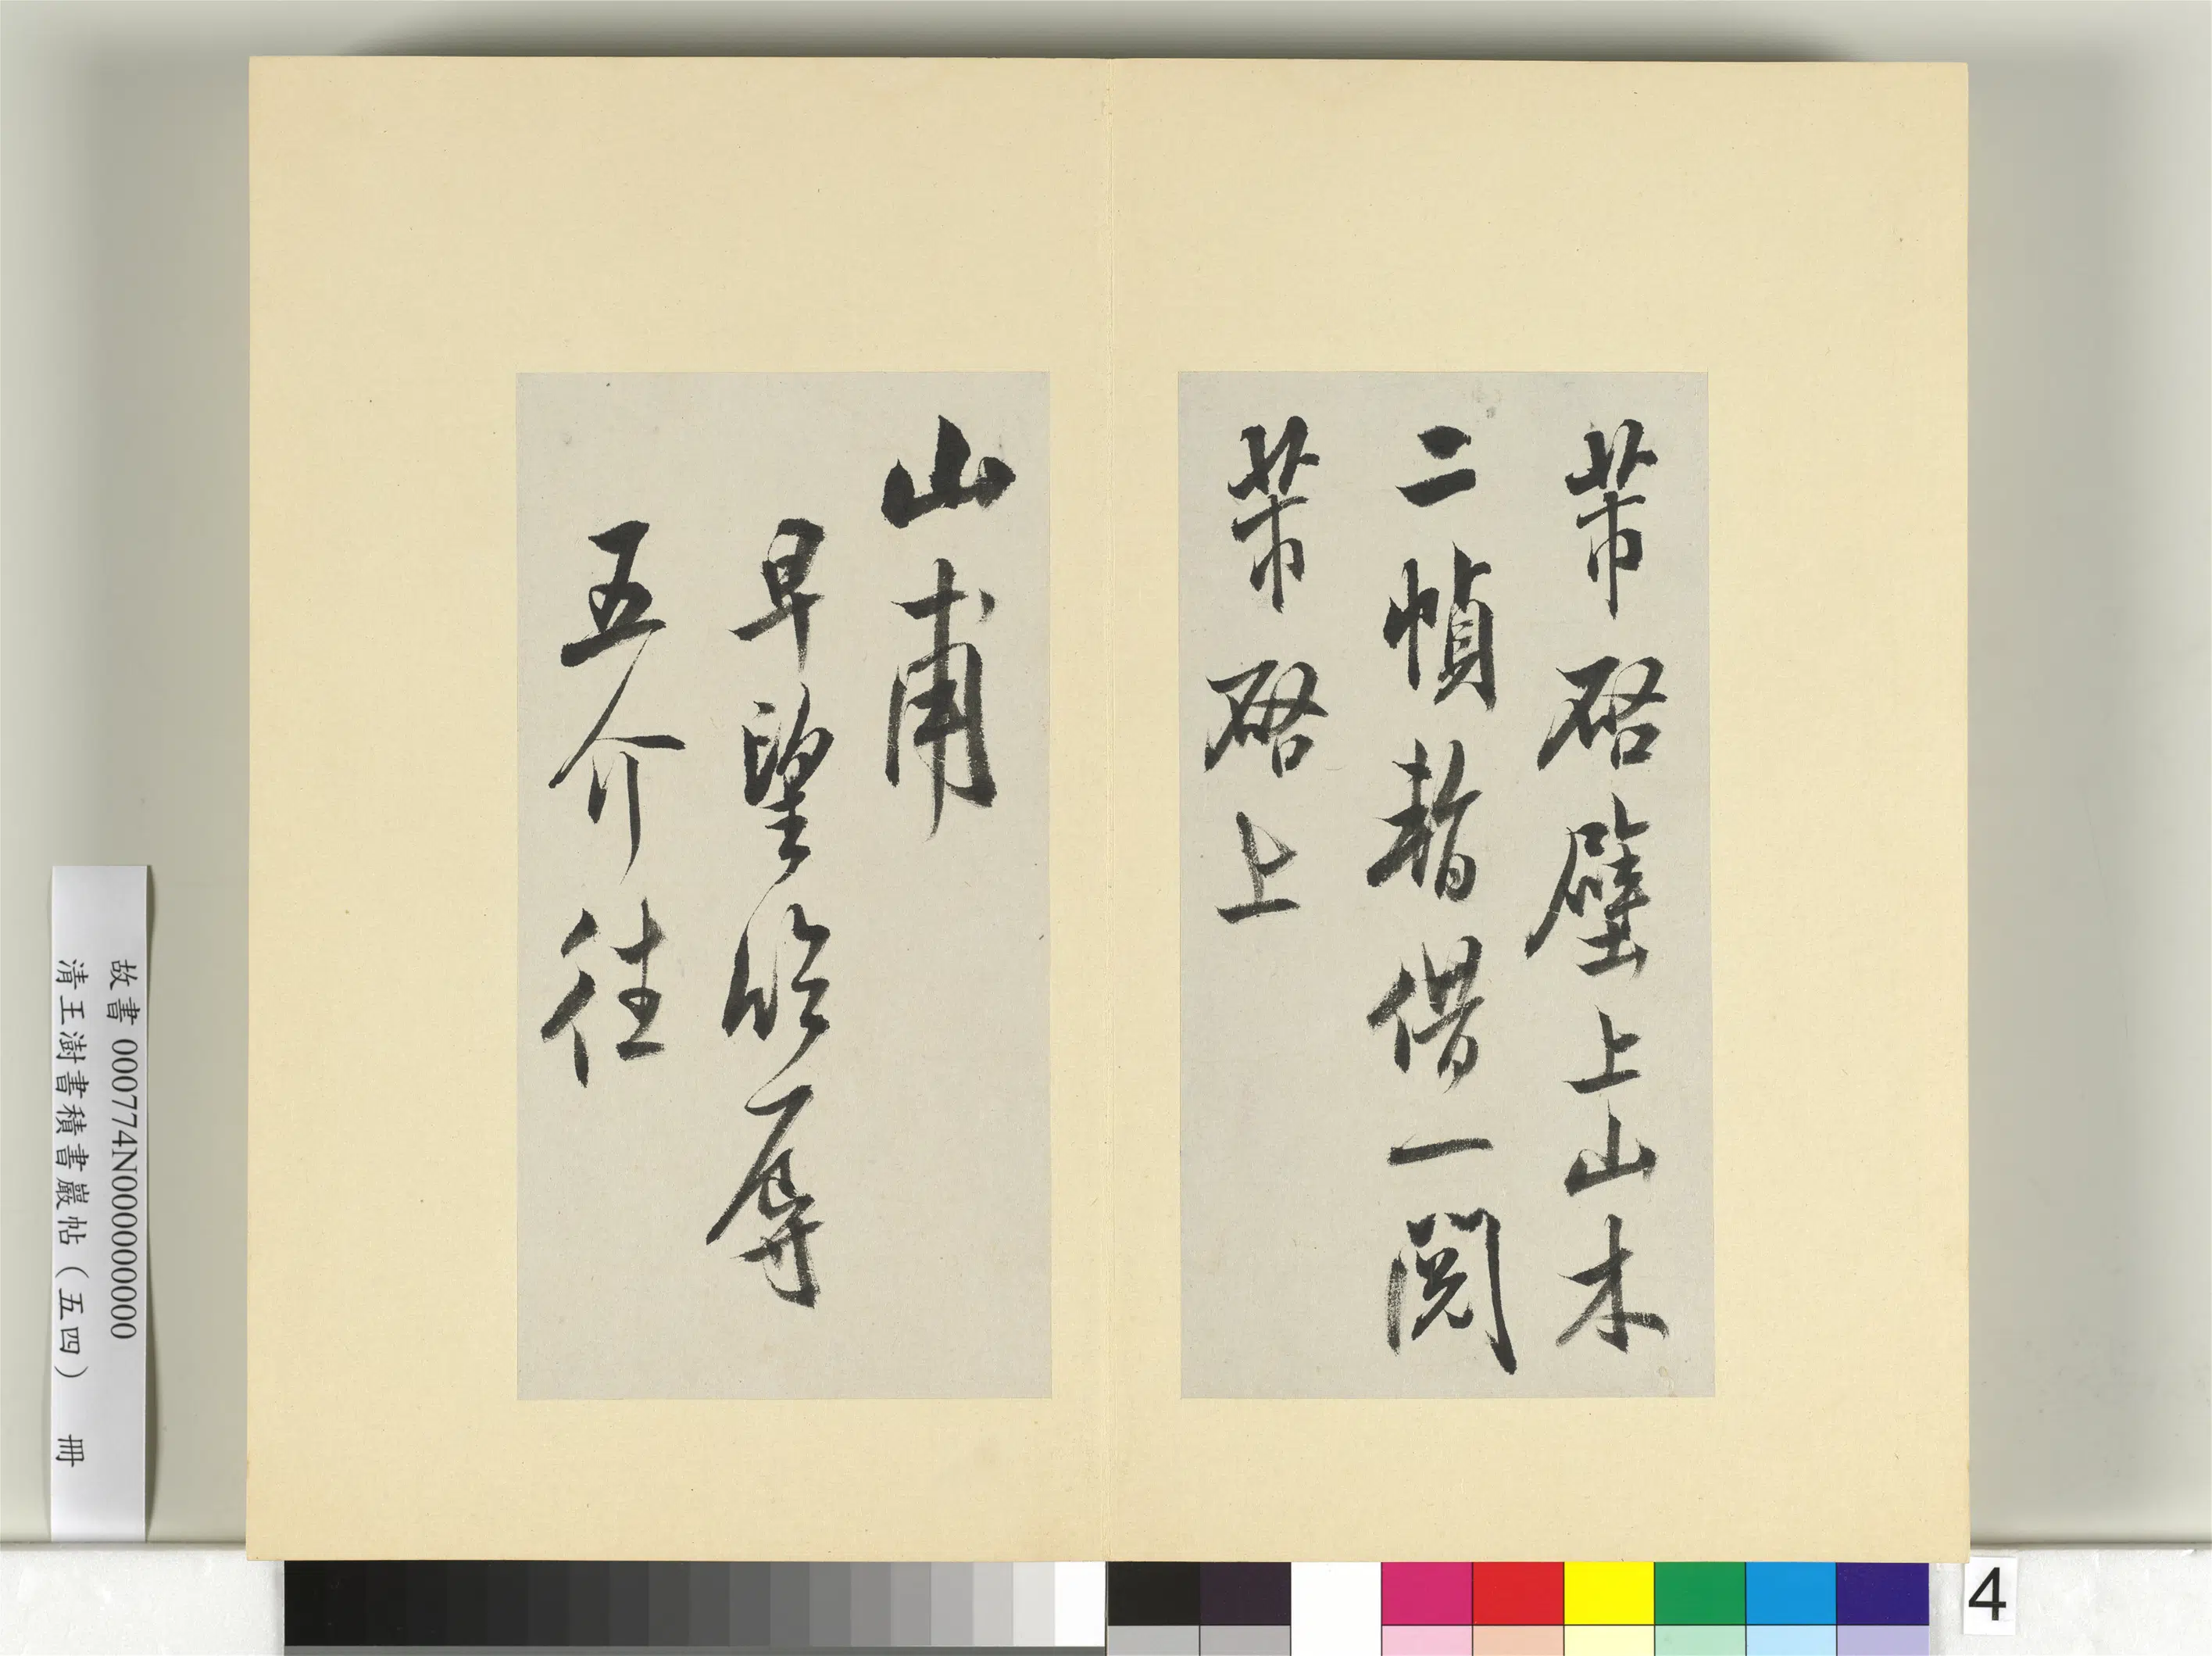 芾啓壁上山木
二幀暫借一閱
芾啓上
山甫
早望臨辱
五介往
故書 000774N000000000
清王澍書積書巖帖（五四） 冊
4